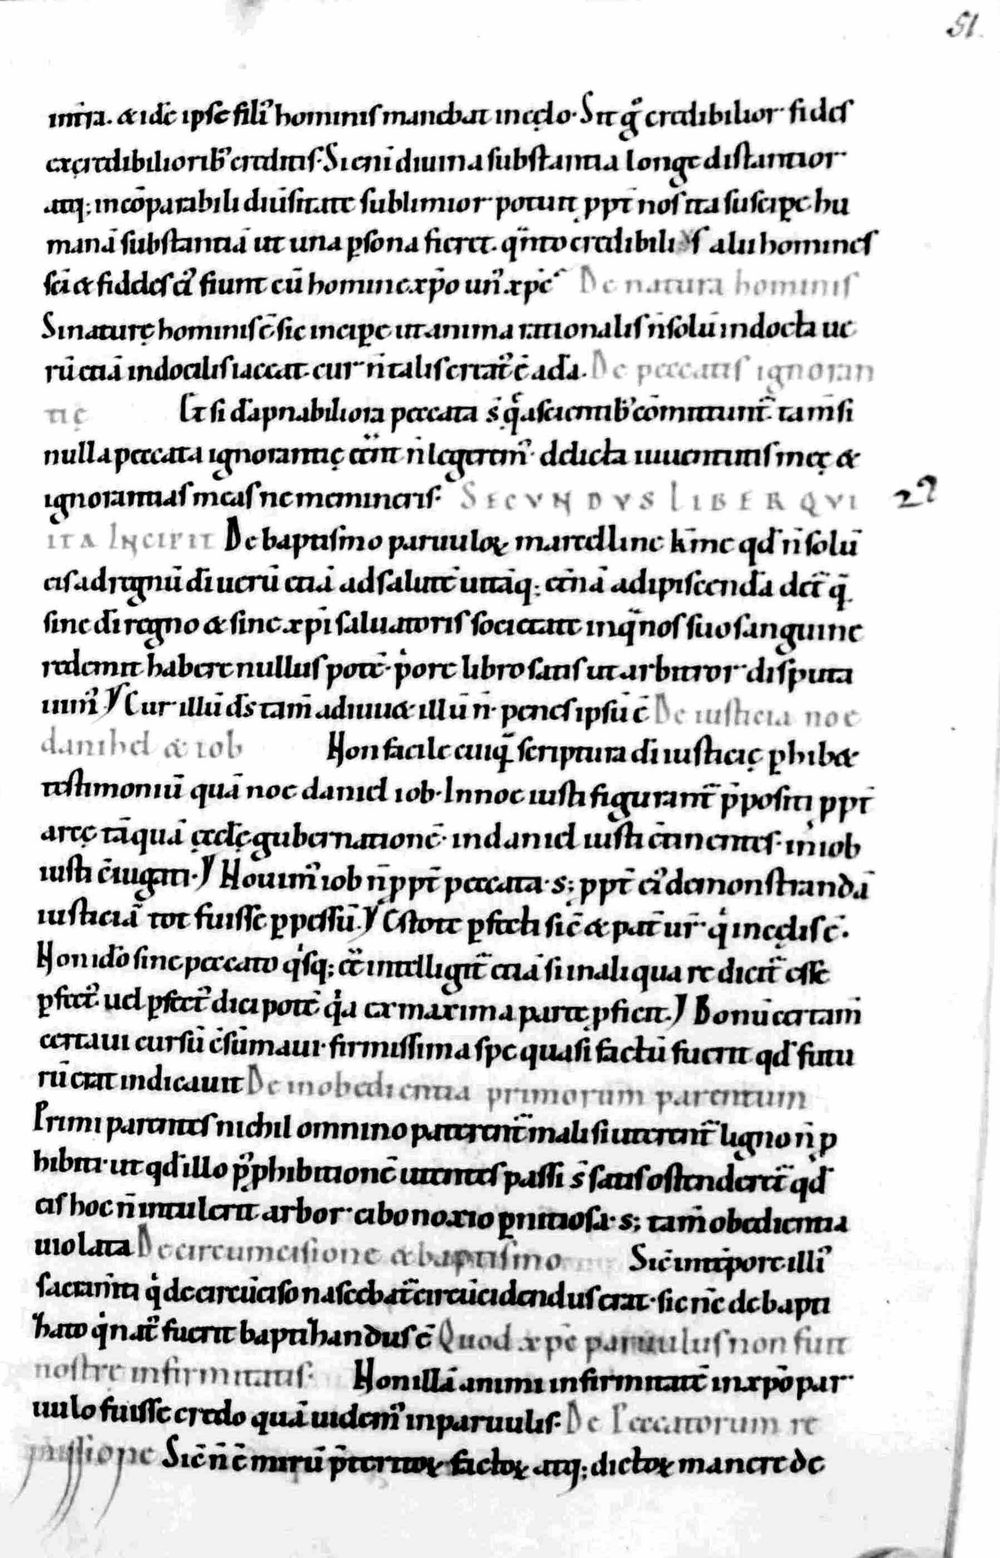 51.
int̄ra. & id̄e ipse fili᷒ hominis manebat in cęlo. Sit g̊ credibilior fides
ex credibiliorib᷒ creditis. Si eni diuina substantia longe distantior
atq; incōparabili diūsitate sublimior potuit ppt̄ nos ita suscipe hu
manā substantiā ut una psona fieret. qn̄to credibili᷒ s̄ alii homines
sc̄i & fideles ei᷒ fiunt cū homine xp̄o un᷒ xp̄c De natura hominis
Si naturę hominis ē sic incipe ut anima rationalis n̄ solū indocta ue
rū etiā indocilis iaceat. cur n̄ talis creat᷒ ē adā. De peccatis ignoran
tię Et si dāpnabiliora peccata s̄ q̄ a scientib᷒ cōmittunt᷑ tam̄ si
nulla peccata ignorantię eēnt n̄ legerem᷒. delicta iuuentutis meę &
ignorantias meas ne memineris. SECVNDVS LIBER QVI
22
ITA INCIPIT De baptismo paruuloꝝ marcelline km̄e qd̄ n̄ solū
eis ad regnū dī uerū etiā ad salutē uitāq; et̄nā adipiscendā det᷑ q̄
sine dī regno & sine xp̄i saluatoris societate in q̄ nos suo sanguine
redemit habere nullus potē. p̄ore libro satis ut arbitror disputa
uim᷒ Y Cur illū ds̄ tam̄ adiuu& illū n̄. penes ipsū ē De iusticia noe
danihel & iob Non facile cuiq̄ scriptura dī iusticię phib&
testimoniū quā noe daniel iob. In noe iusti figurant᷑ p̄positi ppt̄
arcę tāquā ęcclę gubernationē. in daniel iusti c̄tinentes. in iob
iusti c̄iugati. Y Nouim᷒ iob n̄ ppt̄ peccata. s; ppt̄ ei᷒ demonstrandā
iusticiā tot fuisse ppessū. Y Estote pfecti sic̄ & pat̄ ur̄ q̇ in cęlis ē.
Non idō sine peccato q̇sq; eē intelligit᷑ etiā si in aliqua re dicit᷑ esse
pfect᷒ uel pfect᷒ dici potē q̇a ex maxima parte pficit. Y Bonū certam̄
certaui cursū c̄sūmaui. firmissima spe quasi factū fuerit qd̄ futu
rū erat indicauit De inobedientia primorum parentum
Primi parentes nichil omnino paterent᷑ mali si uterent᷑ ligno n̄ p
hibito. ut qd̄ illo p᷒ phibitionē utentes passi s̄ satis ostenderet᷑ qd̄
eis hoc n̄ intulerit arbor cibo noxio pnitiosa. s; tam̄ obedientia
uiolata De circumcisione & baptismo Sic̄ in tēpore illi᷒
sacram̄ti q̇ de circūciso nascebat᷑ circūcidendus erat. sic nc̄ de bapti
zato q̇ nat᷒ fuerit baptizandus ē Quod xp̄c paruulus non fuit
nostrę infirmitatis. Non illā animi infirmitatē in xp̄o par
uulo fuisse credo quā uidem᷒ in paruulis. De Peccatorum re
missione Sic̄ n̄ ē mirū p̄teritoꝝ factoꝝ atq; dictoꝝ manere de